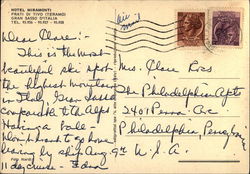 HOTEL MIRAMONTI
PRATI DI TIVO (TERAMO)
GRAN SASSO D'ITALIA
TEL. 95.906 - 95.927 - 95.
air
mail
Dear Clare:-
This is the most
beautiful ski spot
the highest mountain
in Italy Gran Sasso
comparable to the Alps
Having a ball -
don't want to go home
leaving by ship Aug 9th
11 day cruise - Edna
Mrs. Clare Ross
The Philadelphian Apts
2401 Penna Ave
Philadelphia, Penna
U.S.A.